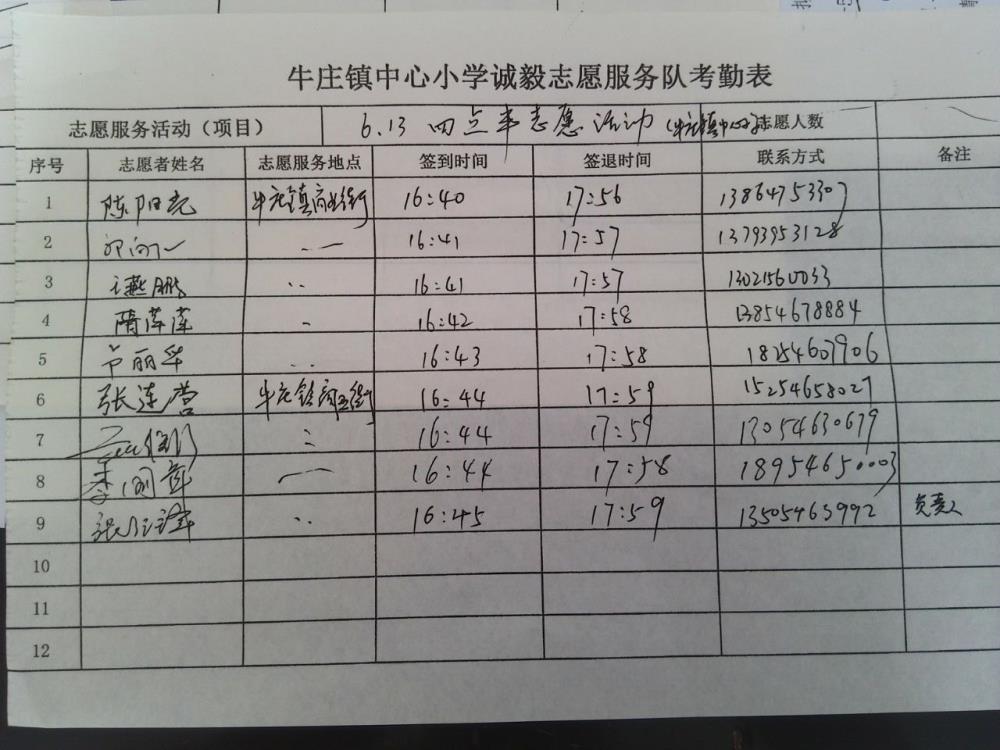 牛庄镇中心小学诚毅志愿服务队考勤表
志愿服务活动（项目） 6.13 四点半志愿活动 (牛庄镇中心 志愿人数
序号 志愿者姓名 志愿服务地点 签到时间 签退时间 联系方式 备注
1 陈阳亮 牛庄镇商业街 16:40 17:56 13864753307
2 16:41 17:57 13793953128
3 燕鹏 16:41 17:57 13021560033
4 隋莲莲 16:42 17:58 13854678884
5 丽华 16:43 17:58 18254607906
6 张连营 牛庄镇商业街 16:44 17:59 15254658027
7 16:44 17:59 13054630679
8 16:44 17:58 18954650003
9 张 16:45 17:59 13505463992 负责人
10
11
12